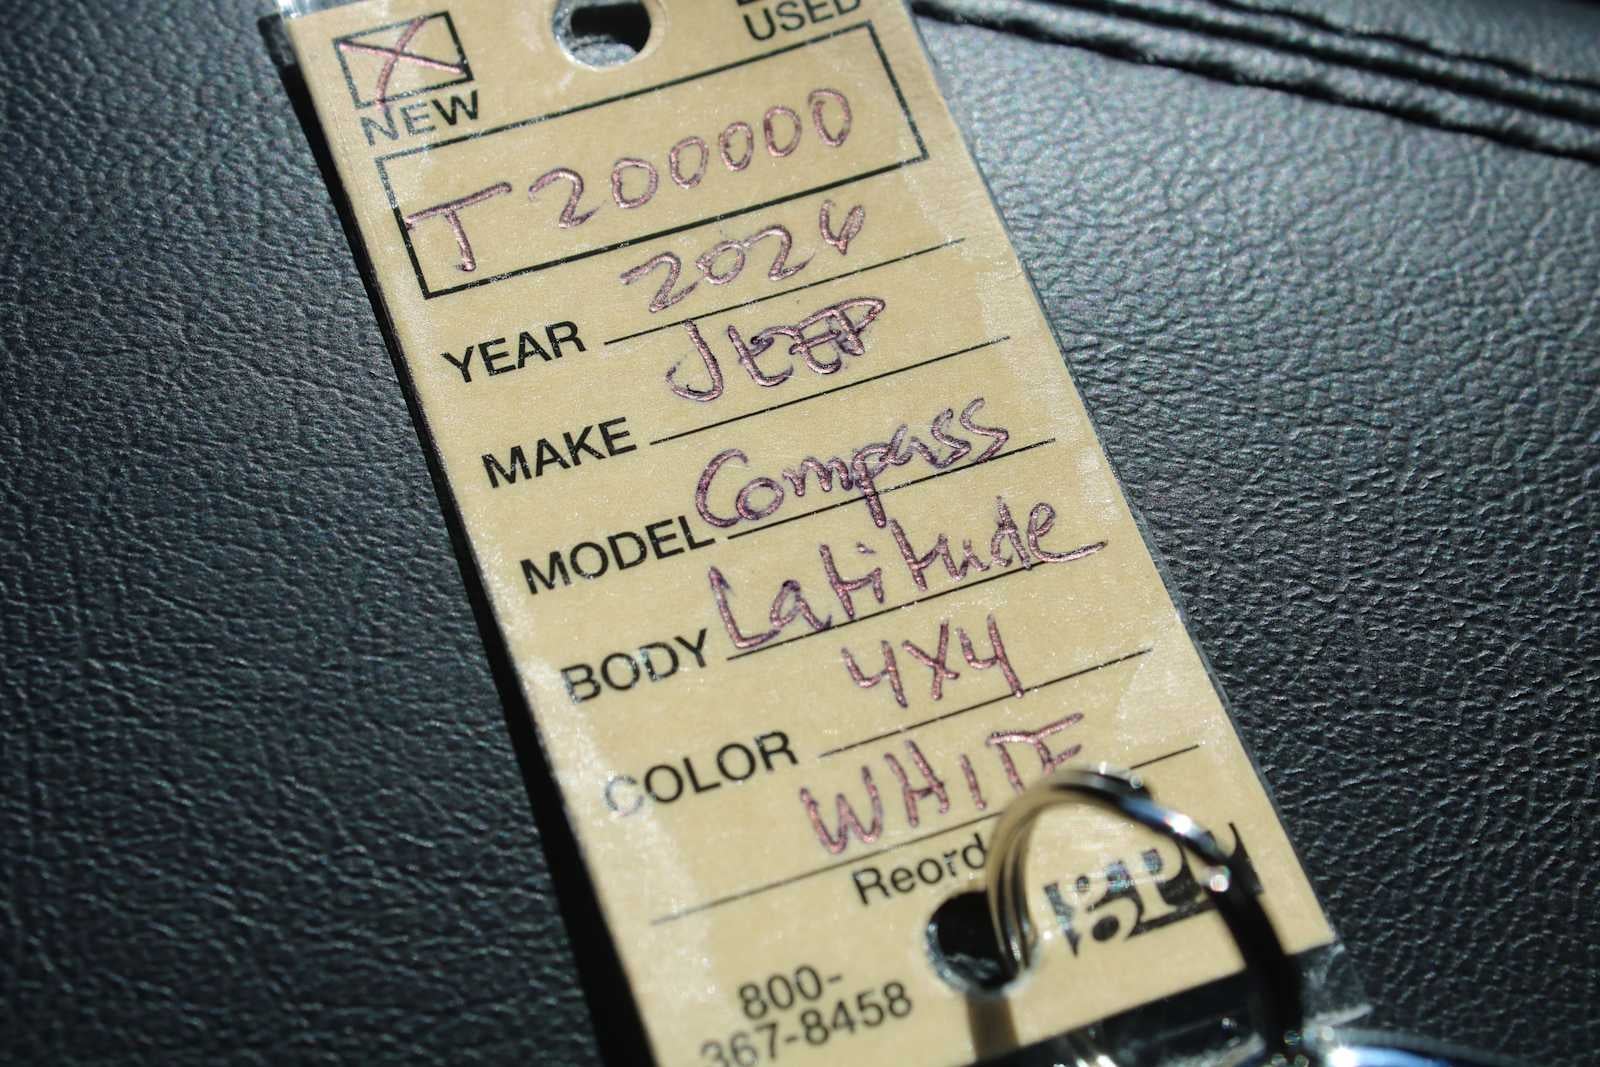 NEW
USED
T200000
YEAR 2024
MAKE JEEP
MODEL Compass
BODY Latitude
4X4
COLOR
WHITE
800-
367-8458